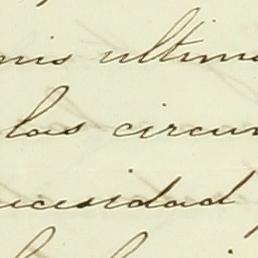 mis ultim
las circun
necesidad